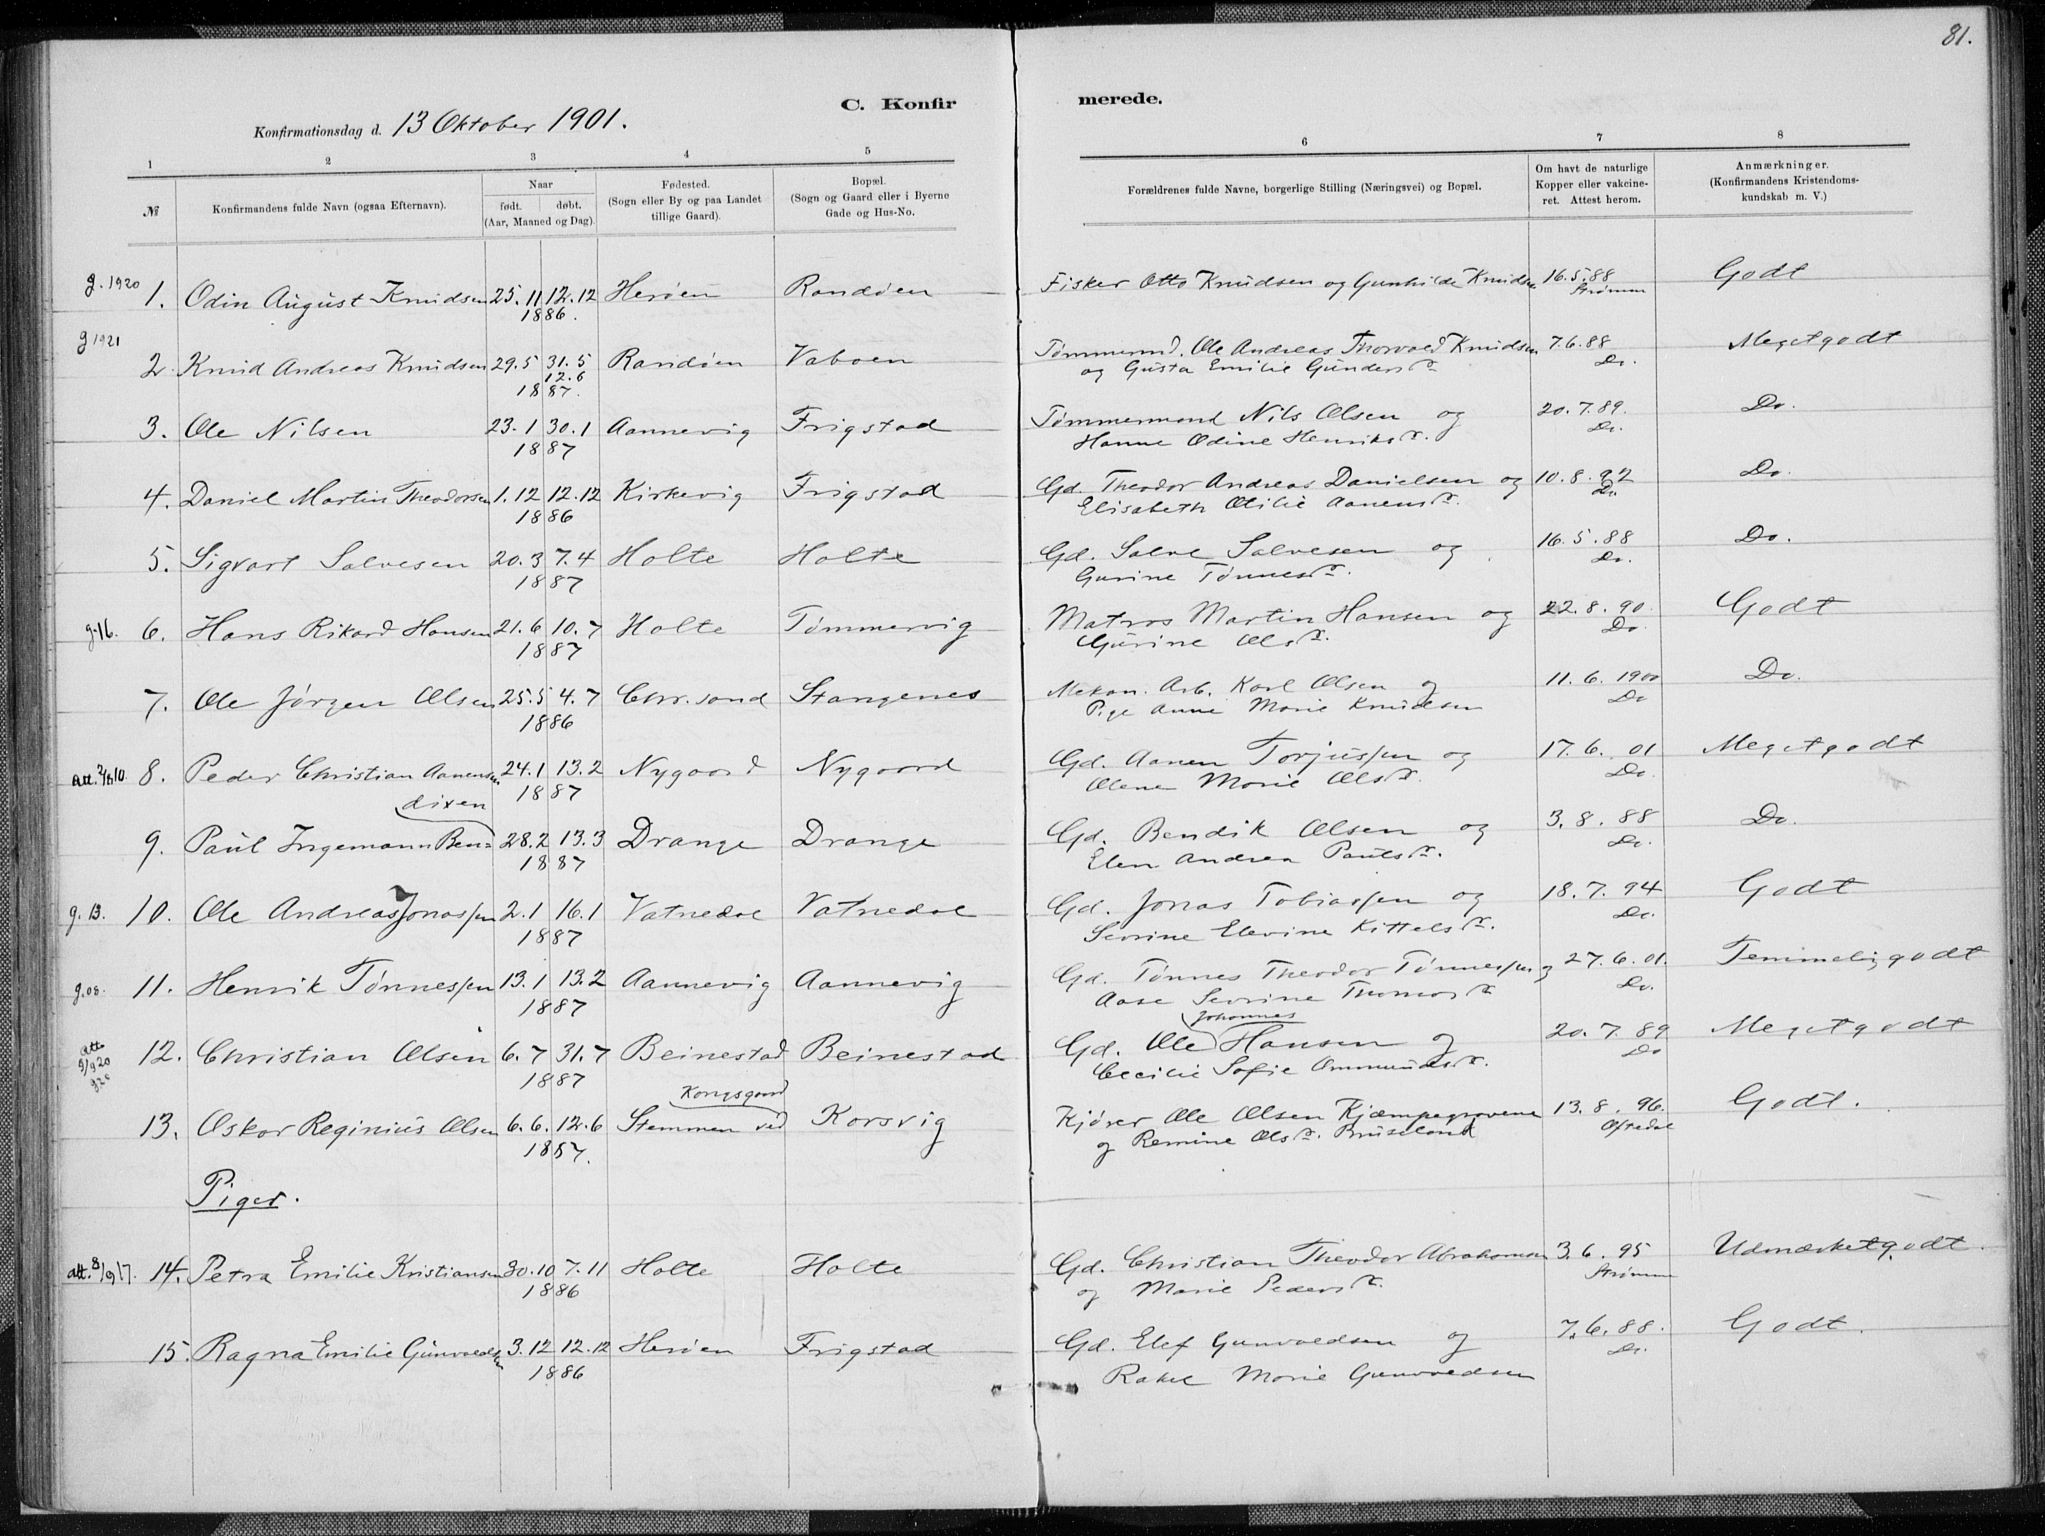 81.
C. Konfir merede.
Konfirmationsdag d. 13 Oktober 1901.
1 2 3 4 5 6 7 8
№ Konfirmandens fulde Navn (ogsaa Efternavn). Naar født. døbt. (Aar, Maaned og Dag). Fødested. (Sogn eller By og paa Landet tillige Gaard). Bopæl. (Sogn og Gaard eller i Byerne Gade og Hus-No. Forældrenes fulde Navne, borgerlige Stilling (Næringsvei) og Bopæl. Om havt de naturlige Kopper eller vakcineret. Attest herom. Anmærkninger. (Konfirmandens Kristendomskundskab m. V.)
g. 1920 1. Odin August Knudsen 25.11 12.12 Herøen Randøen Fisker Otto Knudsen og Gunhilde Knudsen 16.5.88 Godt
1886. Strømm
g 1921 2. Knud Andreas Knudsen 29.5 31.5 Randøen Vaboen Tømmermd. Ole Andreas Thorvald Knudsen 7.6.88 Megetgodt
12.6 og Gusta Emilie Gundersd. Do.
1887.
3. Ole Nilsen 23.1 30.1 Aannevig Frigstad Tømmermand Nils Olsen og 20.7.89. Do.
1887 Hanne Odine Henriksd. Do.
4. Daniel Martin Theodorsen 1.12 12.12 Kirkevig Frigstad Gd. Theodor Andreas Danielsen og 10.8.92 Do.
1886 Elisabeth Otilie Aanensd. Do
5. Sigvart Salvesen 20.3 7.4 Holte Holte Gd. Salve Salvesen og 16.5.88 Do.
1887 Gurine Tønnesd. Do.
g.16. 6. Hans Rikard Hansen 21.6 10.7 Holte Tømmervig Matros Martin Hansen og 22.8.90. Godt
1887 Gurine Olsd. Do.
7. Ole Jørgen Olsen 25.5 4.7 Chr.sand Stangenes Mekan. Arb. Karl Olsen og 11.6.1900 Do.
1886 Pige Anne Marie Knudsen Do
8. Peder Christian Aanensen 24.1 13.2 Nygaard Nygaard Gd. Aanen Torjussen og 17.6.01 Megetgodt
1887 Olene Marie Olsd. Do.
dixen
9. Paul Ingemann Ben= 28.2 13.3 Drange Drange Gd. Bendik Olsen og 3.8.88 Do.
1887 Elen Andrea Paulsd. Do.
g. 13. 10. Ole Andreas Jonassen 2.1 16.1 Vatnedal Vatnedal Gd. Jonas Tobiassen og 18.7.94 Godt
1887 Sevrine Elevine Kittelsd. Do.
g.08. 11. Henrik Tønnessen 13.1 13.2 Aannevig Aannevig Gd. Tønnes Theodor Tønnessen og 27.6.01. Temmelig godt
1887 Aase Sevrine Thomasd. Do.
Johannes
12. Christian Olsen 6.7 31.7 Beinestad Beinestad Gd. Ole Hansen og 20.7.89 Megetgodt
g20 1887 Cecilie Sofie Ommundsd. Do
Kongsgaard
13. Oskar Reginius Olsen 6.6. 12.6 Stemmen ved Korsvig Kjører Ole Olsen Kjæmpegrovene 13.8.96. Godt.
1887. og Remine Olsd. Bruseland
Piger.
att. 8/9 17. 14. Petra Emilie Kristiansen 30.10 7.11 Holte Holte Gd. Christian Theodor Abrahamsen 3.6.95 Udmærketgodt.
1886 og Marie Pedersd. Strømm
15. Ragna Emilie Gunvaldsen 3.12 12.12 Herøen Frigstad Gd. Elef Gunvaldsen og 7.6.88. Godt.
1886 Rakel Marie Gunvaldsen Do.